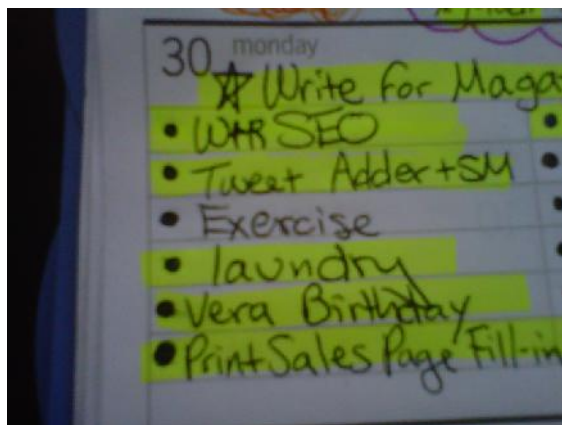 30 monday
☆ Write for Maga
• W+R SEO
• Tweet Adder + SM
• Exercise
• laundry
• Vera Birthday
• Print Sales Page Fill-in